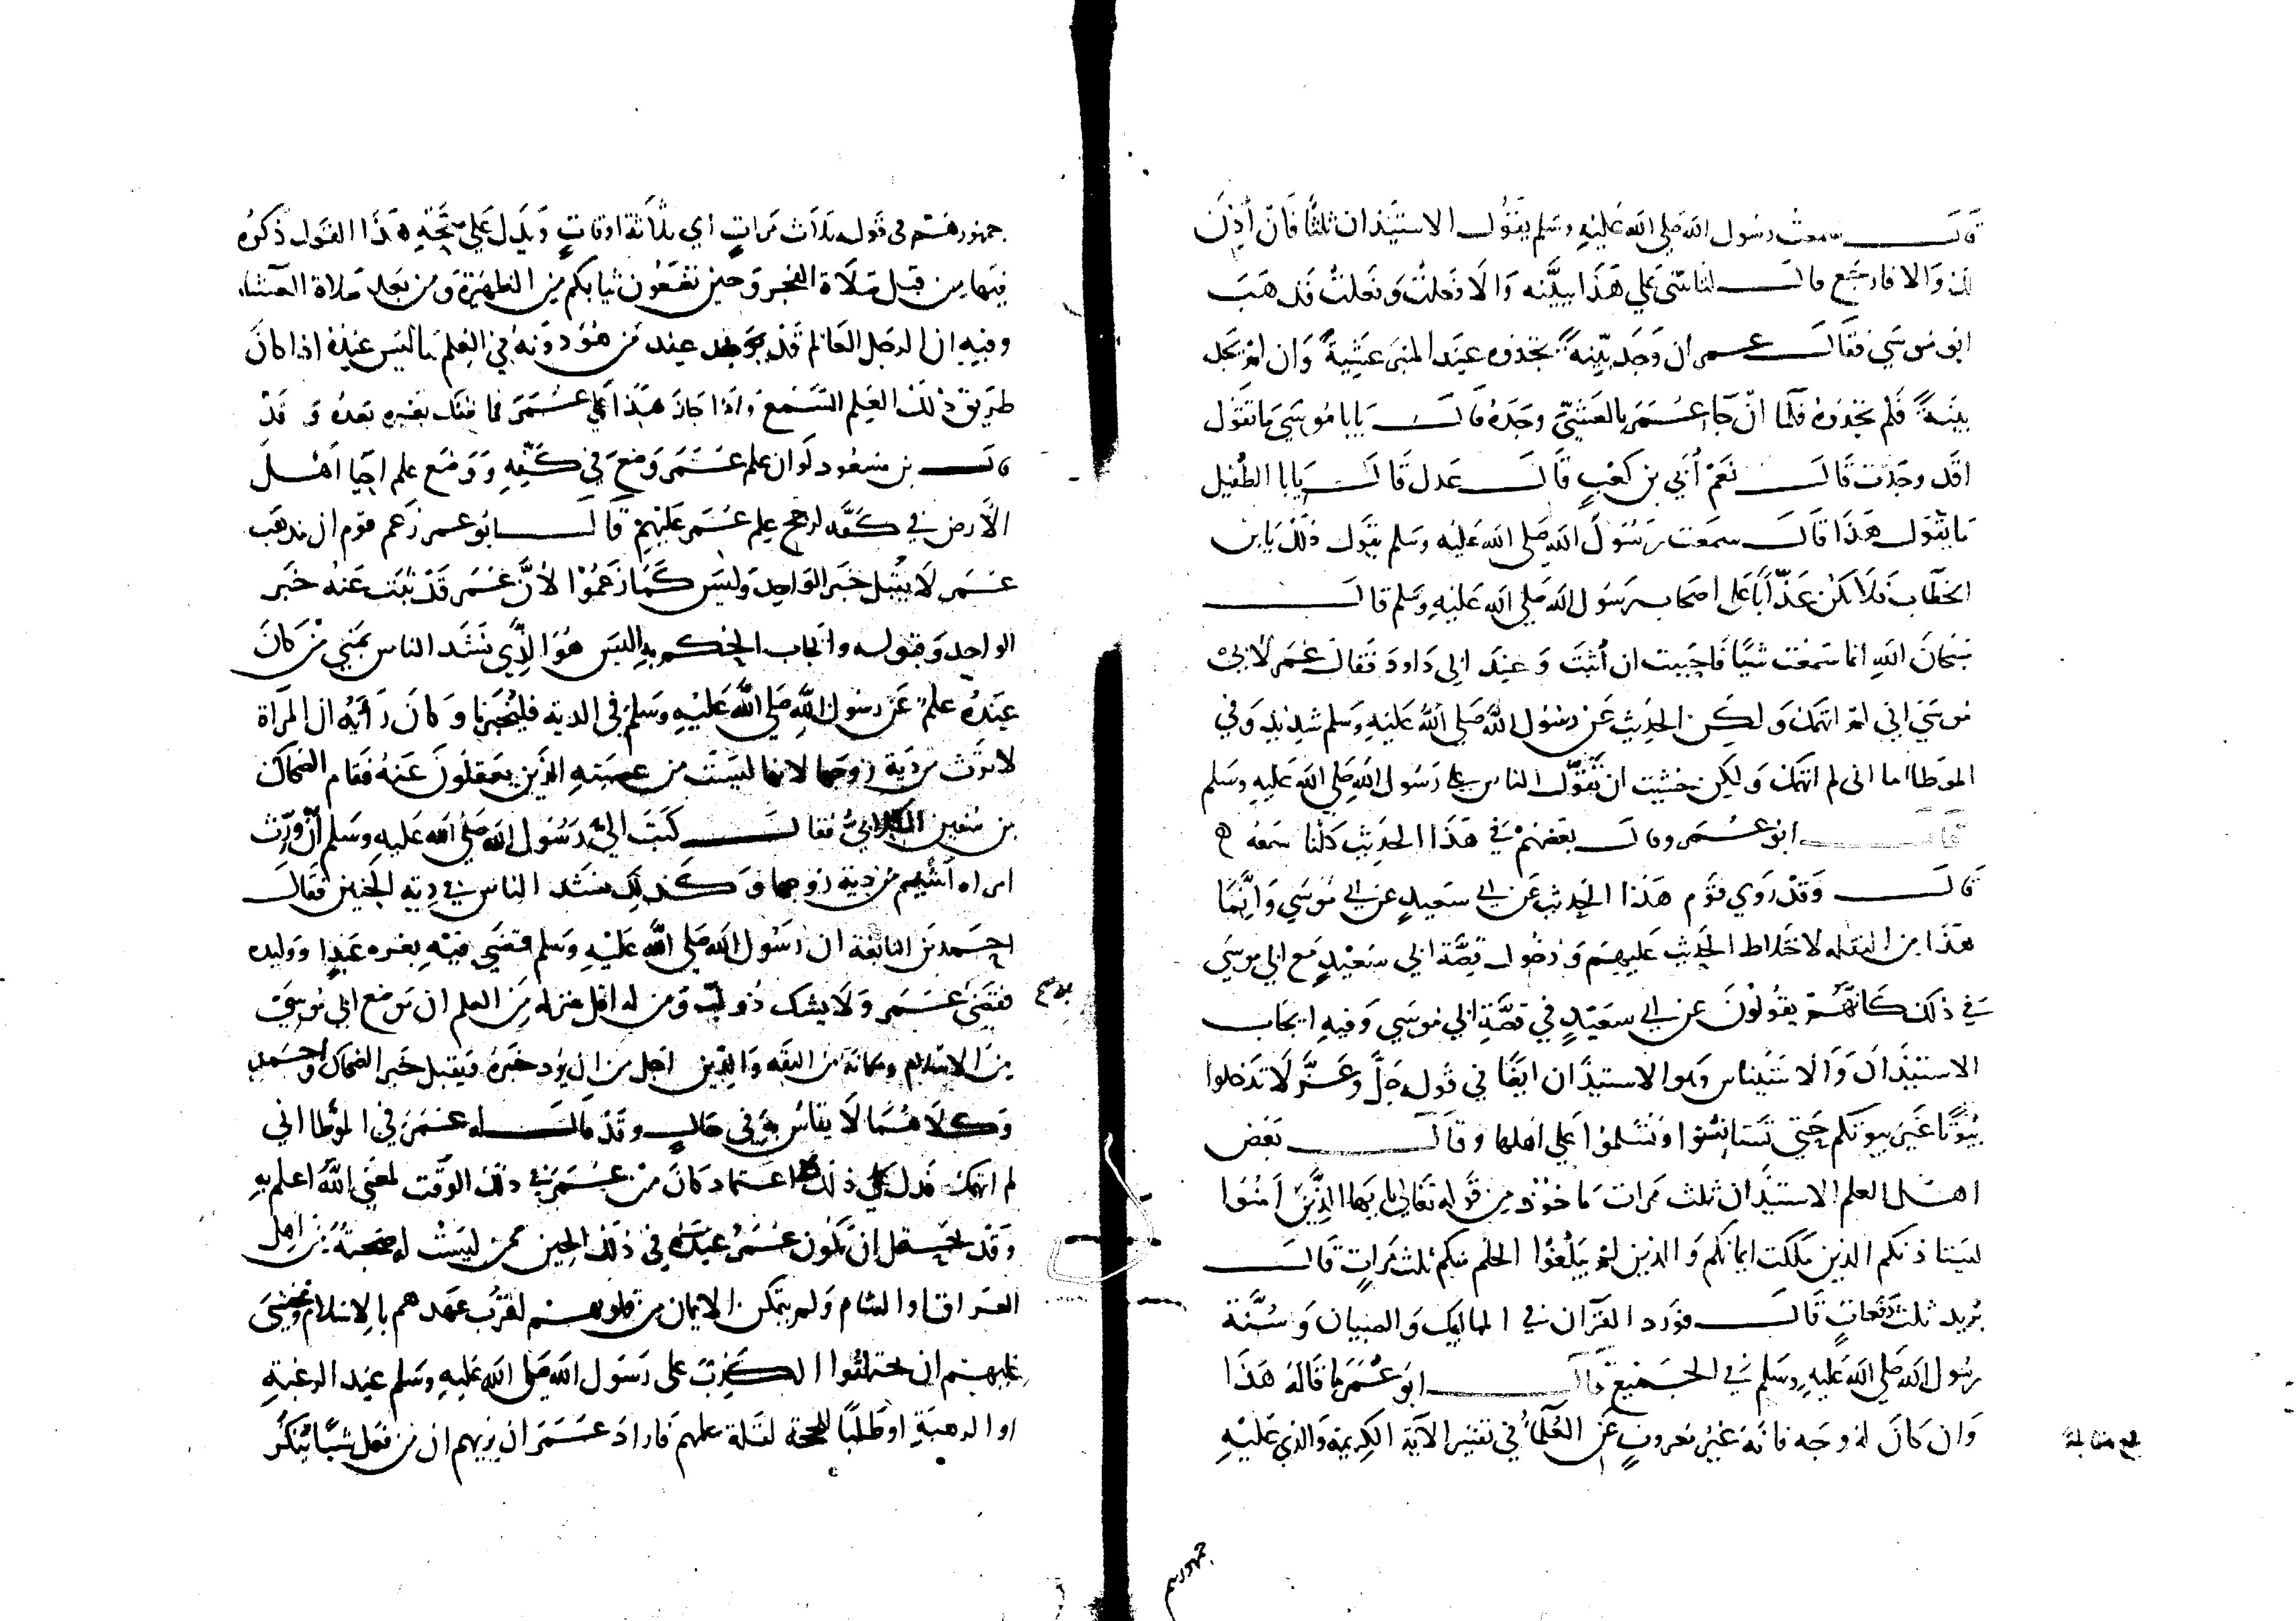 قال سمعت رسول الله صلى الله عليه وسلم يقول الاستيذان ثلثا فان أذن
لك والا فارجع قال لتاتني علي هذا ببينه والا فعلت وفعلت فذهب
ابو موسي فقال عمر ان وجد بينة تجدوه عند المنبر عشية وان لم يجد
بينة فلم تجدوه فلما ان جا عمر بالعشي وجده قال يابا موسي ما تقول
اقد وجدت قال نعم أبي بن كعب قال عدل قال يابا الطفيل
ما يقول هذا قال سمعت رسول الله صلى الله عليه وسلم يقول ذلك يابن
الخطاب فلا تكن عذابا على اصحاب رسول الله صلى الله عليه وسلم قال
سبحان الله انما سمعت شيا فاحببت ان أثبت وعند ابي داود فقال عمر لابي
موسي اني لم اتهمك ولكن الحديث عن رسول الله صلى الله عليه وسلم شديد وفي
الموطا اما اني لم اتهمك ولكن خشيت ان يتقول الناس على رسول الله صلى الله عليه وسلم
قال ابو عمر وقال بعضهم في هذا الحديث كلنا سمعه ه
قال وقد روي قوم هذا الحديث عن ابي سعيد عن ابي موسي وانما
هذا من النقله لاختلاط الحديث عليهم ودخول قصة ابي سعيد مع ابي موسي
في ذلك كانهم يقولون عن ابي سعيد في قصة ابي موسي وفيه ايجاب
الاستيذان والاستيناس وهو الاستيذان ايضا في قوله جل وعز لا تدخلوا
بيوتا غير بيوتكم حتى تستانسوا وتسلموا علي اهلها وقال بعض
اهل العلم الاستيذان ثلث مرات ماخوذ من قوله تعالى يا يها الذين امنوا
ليستاذنكم الذين ملكت ايمانكم والذين لم يبلغوا الحلم منكم ثلث مرات قال
يريد ثلث دفعات قال فورد القرآن في المماليك والصبيان وسنة
رسول الله صلى الله عليه وسلم في الجميع قال ابو عمر ما قاله هذا
وان كان له وجه فانه غير معروف عن العلما في تفسير الآية الكريمة والذي عليه
جمهورهم
جمهورهم في قوله ثلاث مرات أي ثلاثة اوقات ويدل علي صحة هذا القول ذكره
فيها من قبل صلاة الفجر وحين تضعون ثيابكم من الظهيرة ومن بعد صلاة العشاء
وفيه ان الرجل العالم قد يوجد عند من هو دونه في العلم ما ليس عنده اذا كان
طريق ذلك العلم السمع واذا جاز هذا على عمر فما ظنك بغيره بعده وقد
قال بن مسعود لو ان علم عمر وضع في كفه ووضع علم احيا اهل
الأرض في كفه لرجح علم عمر عليهم قال ابو عمر زعم قوم ان مذهب
عمر لا يقبل خبر الواحد وليس كما زعموا لأن عمر قد ثبت عنه خبر
الواحد وقبوله وايجاب الحكم به اليس هو الذي نشد الناس بمني من كان
عنده علم عن رسول الله صلى الله عليه وسلم في الدية فليخبرنا وكان رأيه ان المرأة
لا ترث من دية زوجها لانها ليست من عصبته الذين يعقلون عنه فقام الضحاك
بن سفين الكلابي فقال كتب الي رسول الله صلى الله عليه وسلم أن ورث
امراه أشيم من دية زوجها وكذلك نشد الناس في دية الجنين فقال
حمد بن النابغة ان رسول الله صلى الله عليه وسلم قضي فيه بغره عبد او وليده
فقضى عمر ولا يشك ذو لب ومن له اقل منزله من العلم ان موضع ابي موسي
من الاسلام ومكانه من الفقه والدين اجل من ان يرد خبره ويقبل خبر الضحاك وحمد
وكلاهما لا يقاس به في حال وقد قال له عمر في الموطا اني
لم اتهمك فدل على ذلك اعتماد كان من عمر في ذلك الوقت لمعني الله اعلم به
وقد يحتمل ان يكون عمر عنده في ذلك الحين ممن ليست له صحبة من اهل
العراق او الشام ولم يتمكن الايمان من قلوبهم لقرب عهدهم بالاسلام فخشي
عليهم ان يختلقوا الكذب على رسول الله صلى الله عليه وسلم عند الرغبة
او الرهبة او طلبا للحجة لقلة علمهم فاراد عمر ان يريهم ان من فعل شيا ينكر